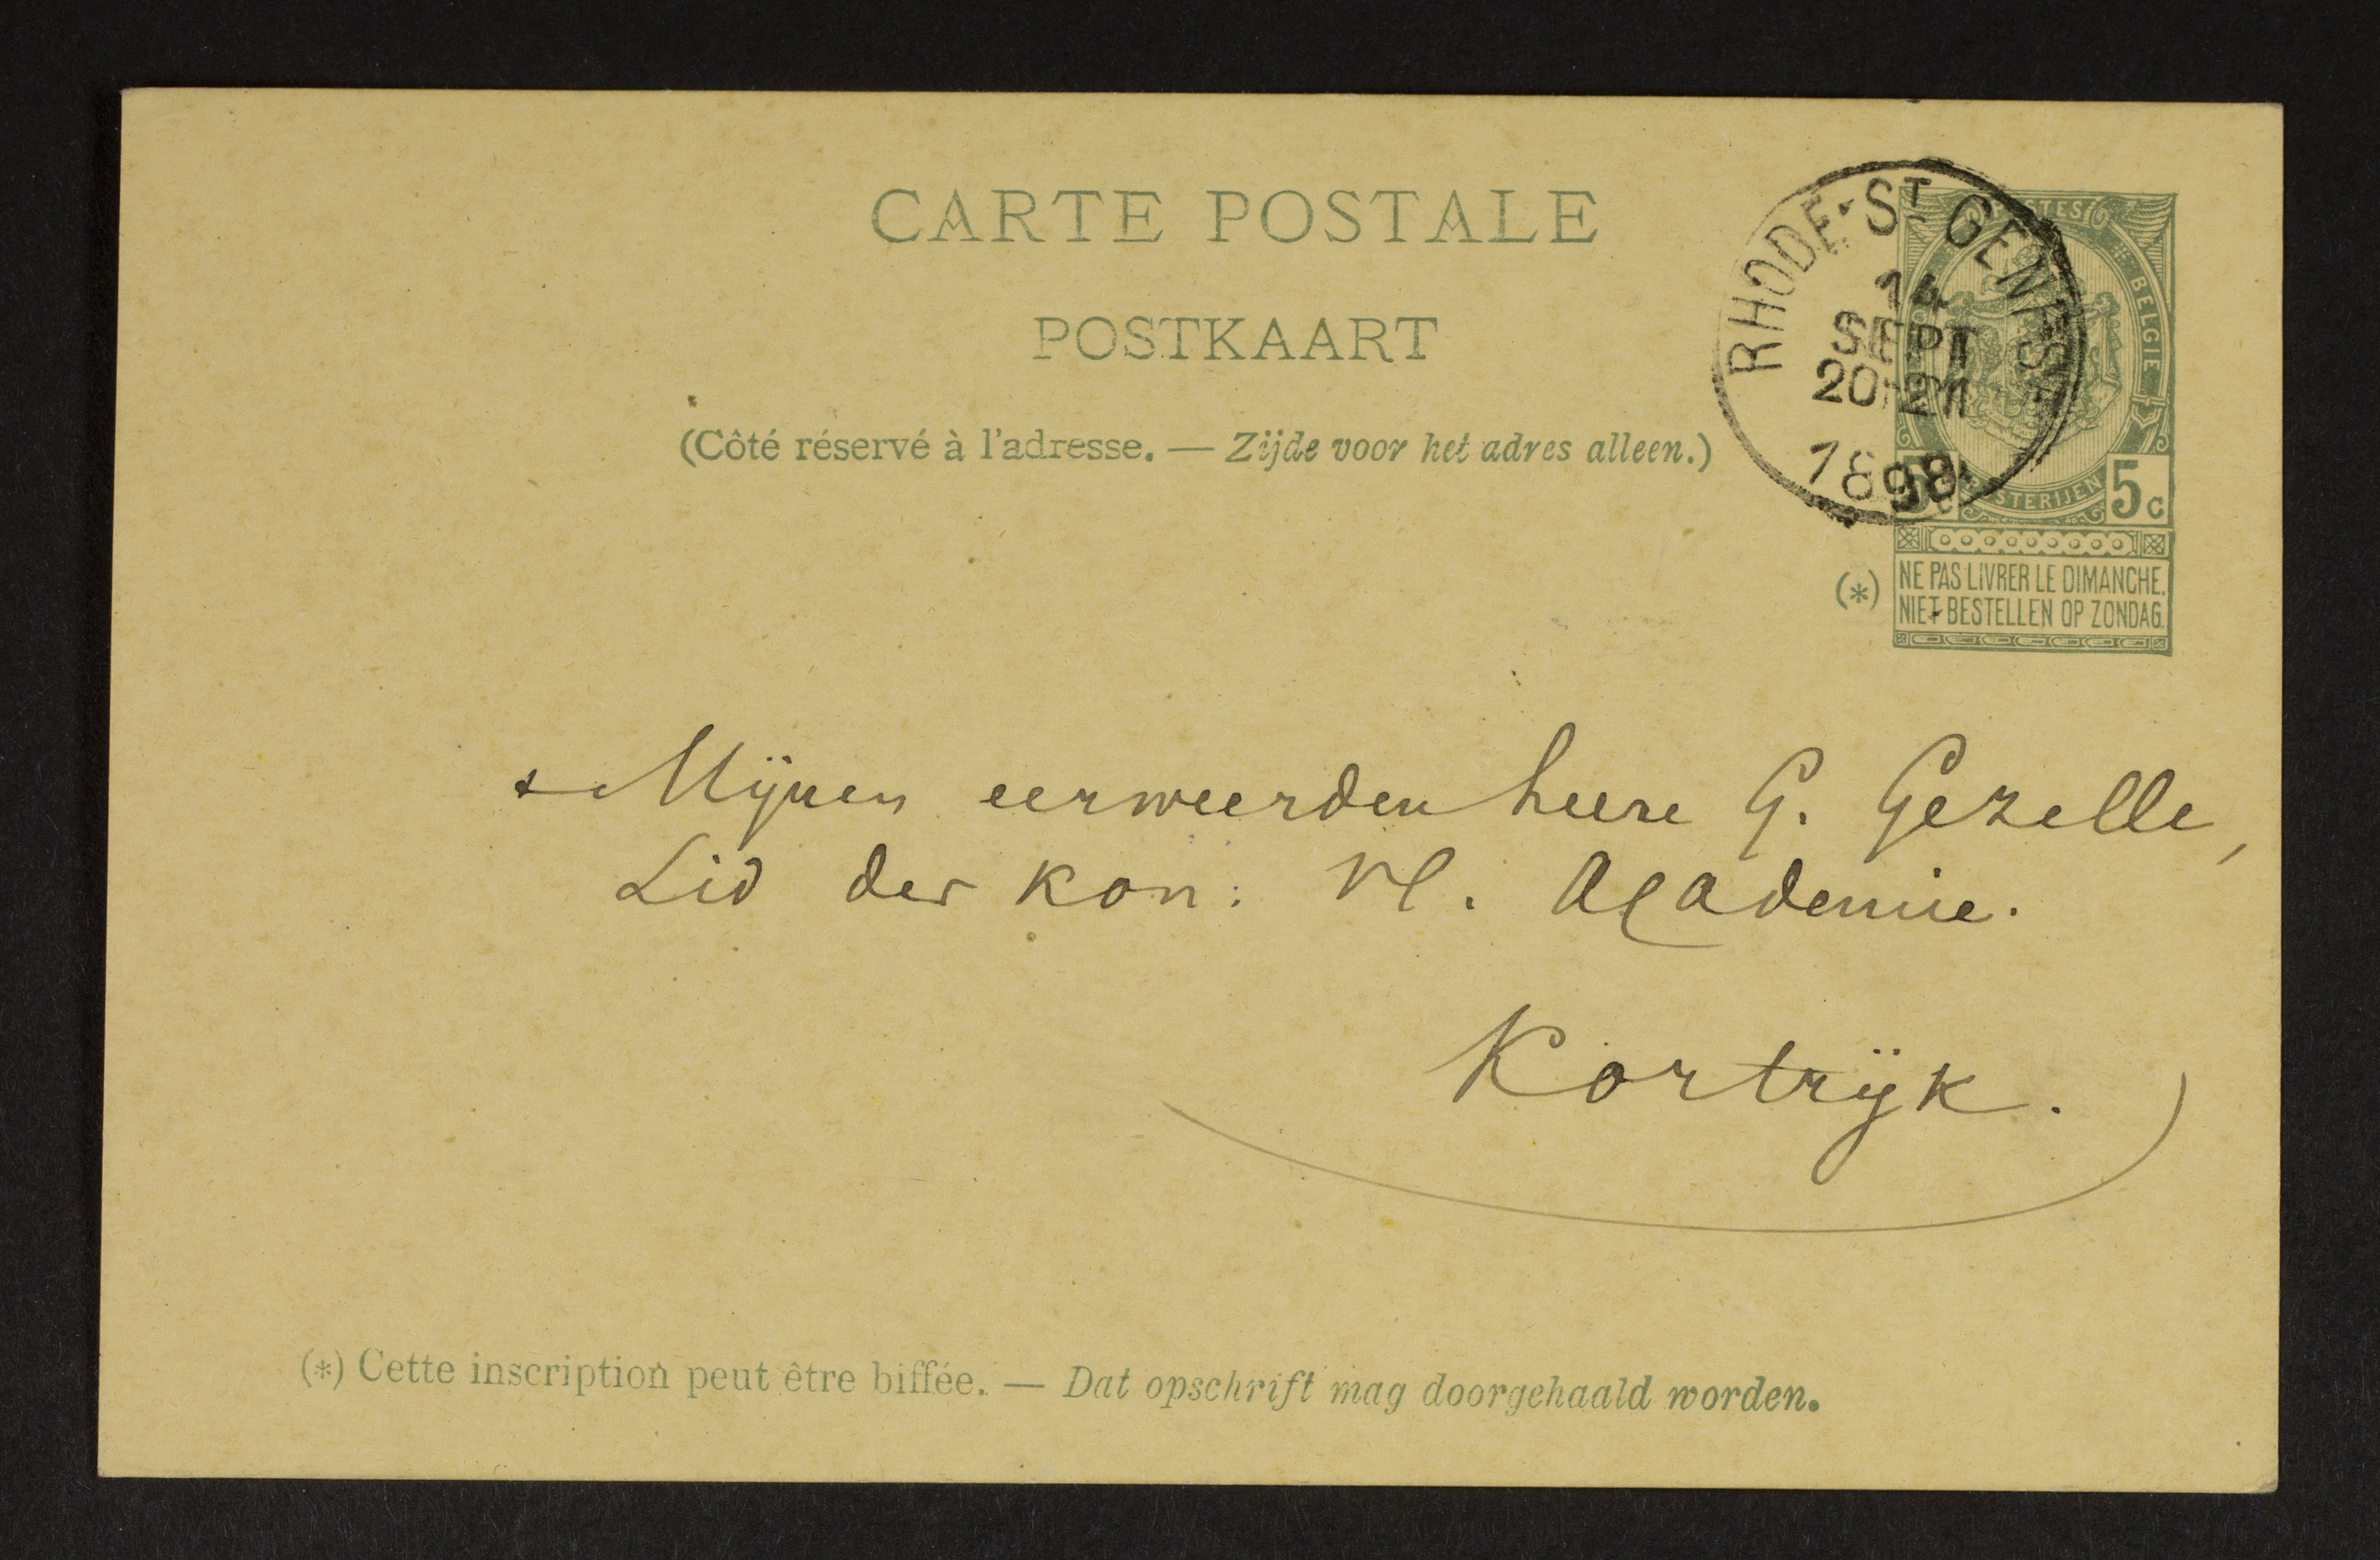 CARTE POSTALE
POSTKAART
(Côté réservé à l'adresse. — Zijde voor het adres alleen.)
RHODE-ST GENÈSE
14
SEPT
20-21
1898
POSTES
BELGIE
POSTERIJEN
5c
5c
(*)
NE PAS LIVRER LE DIMANCHE.
NIET BESTELLEN OP ZONDAG.
Mijnen eerweerden heere G. Gezelle,
Lid der kon: Vl. Academie.
Kortrijk.
(*) Cette inscription peut être biffée. — Dat opschrift mag doorgehaald worden.